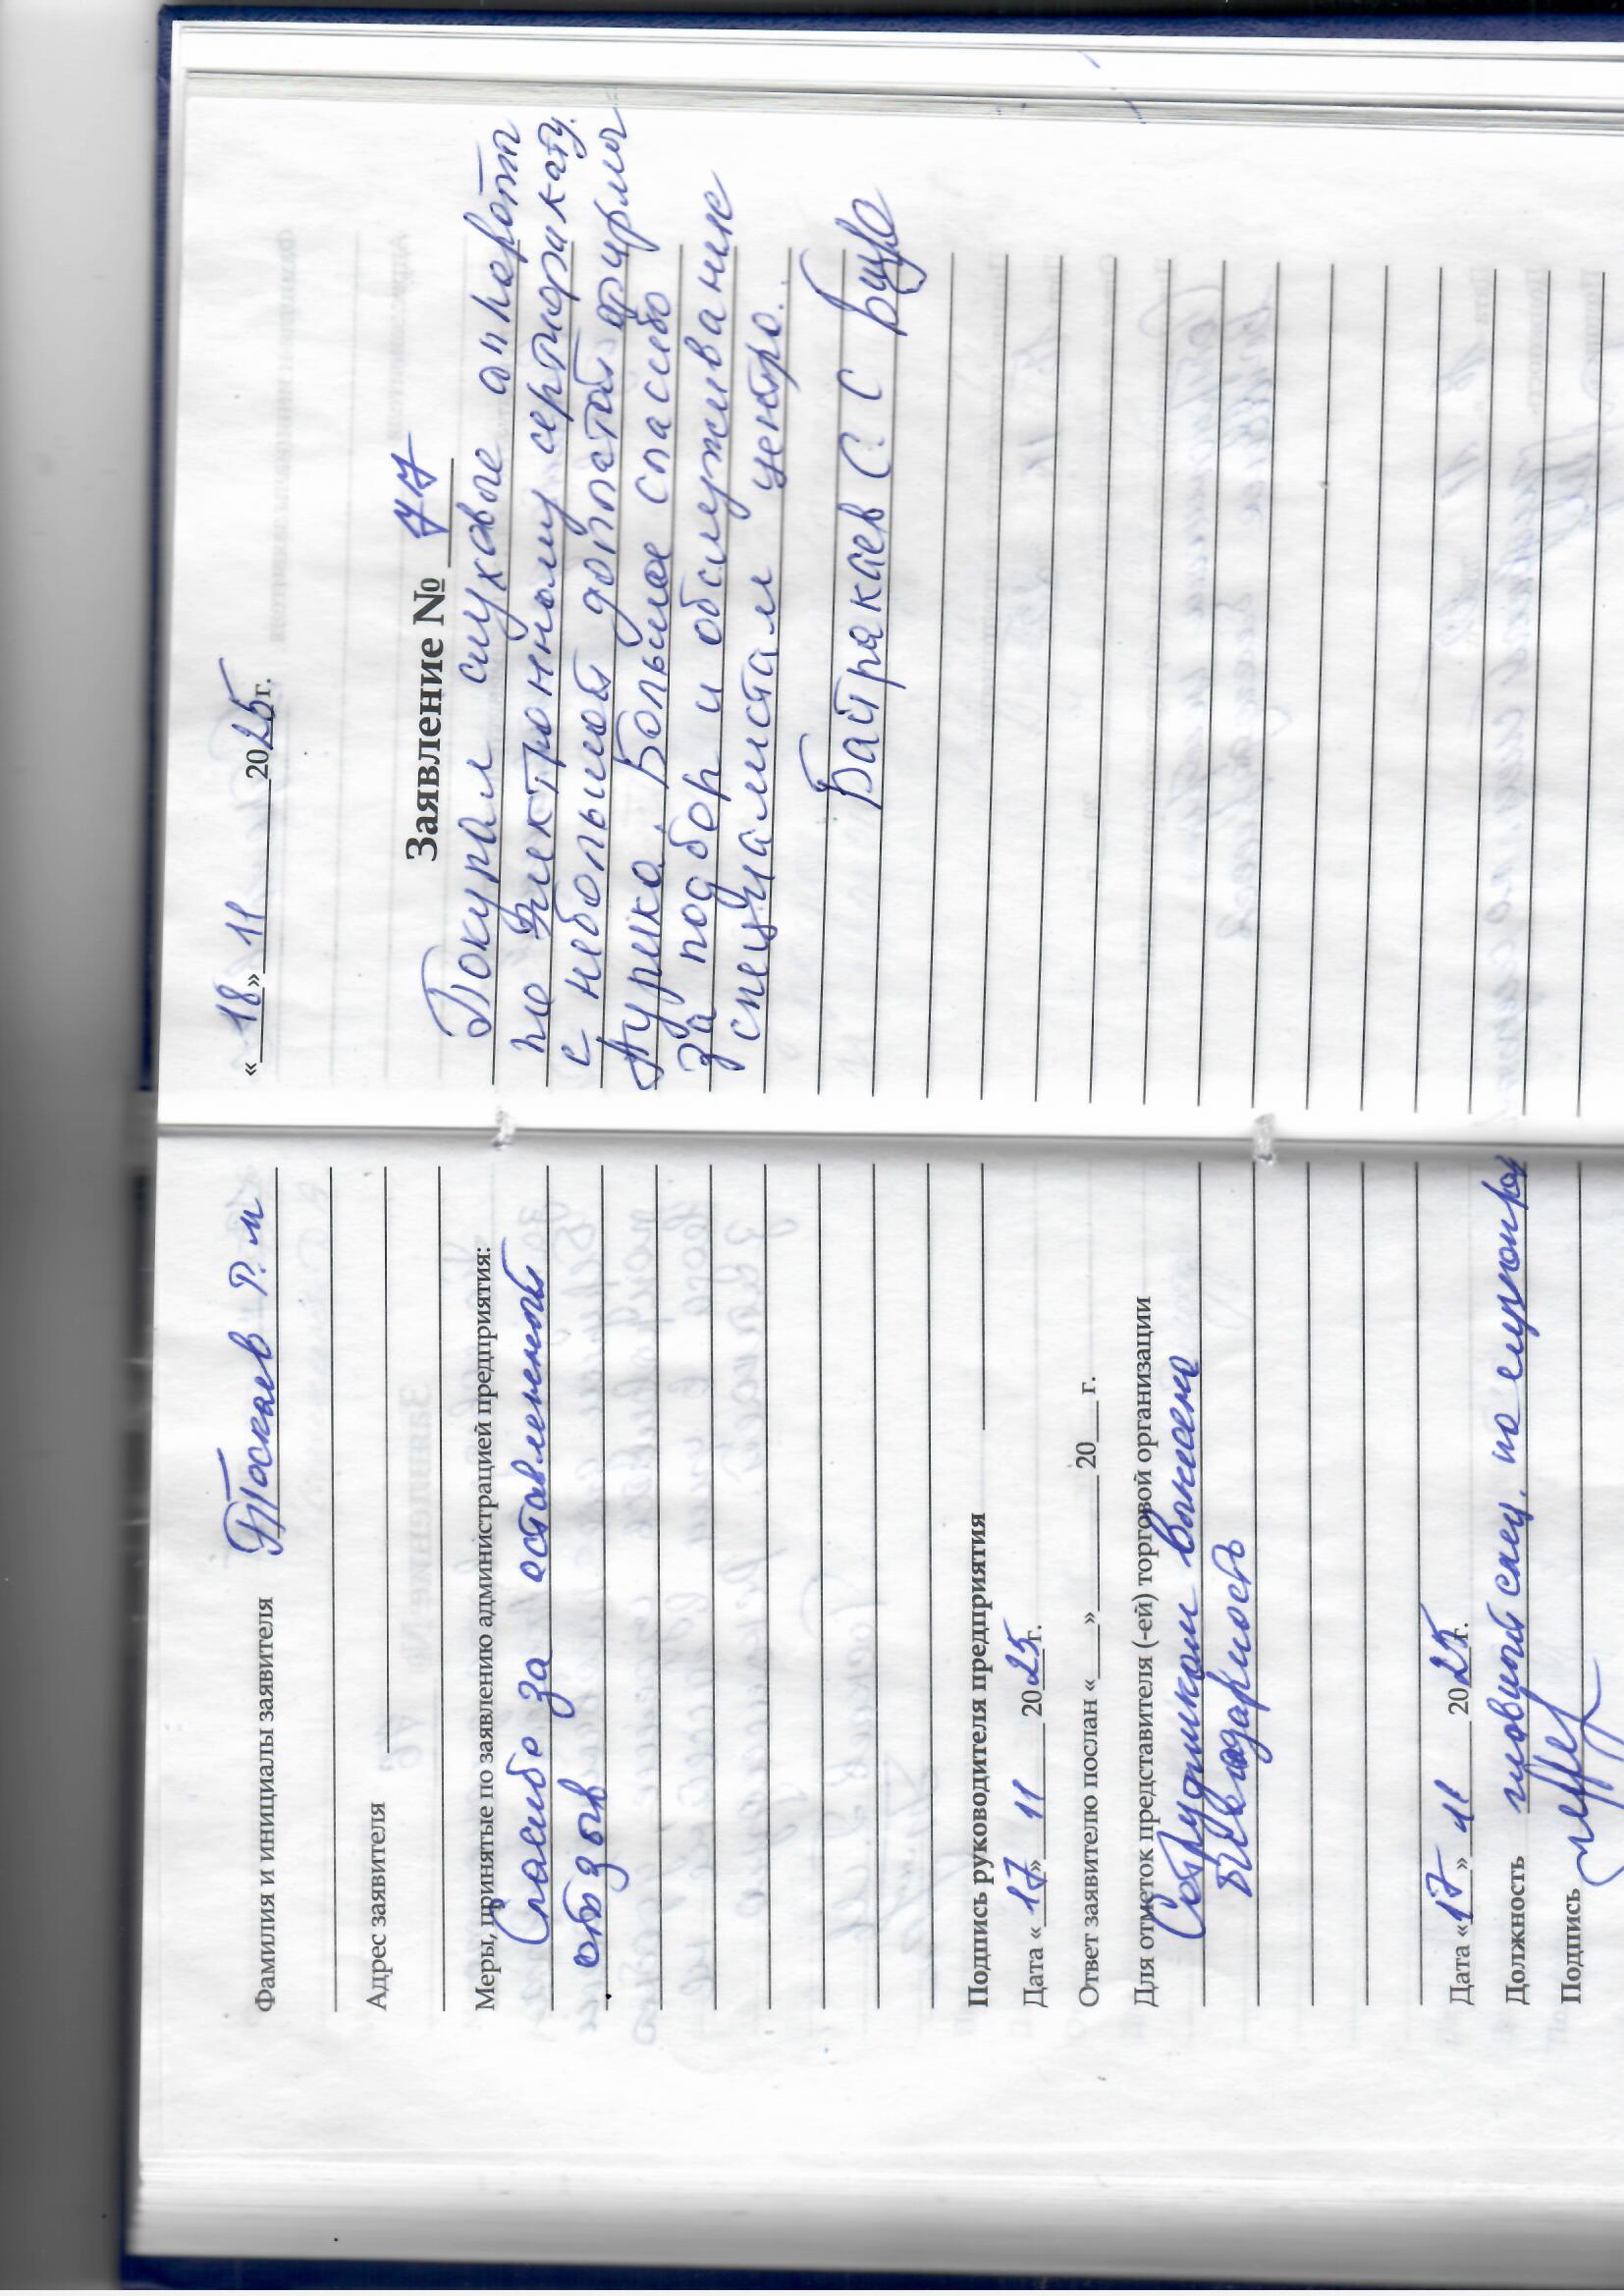 Фамилия и инициалы заявителя Тоскаев Р. м
Адрес заявителя
Меры, принятые по заявлению администрацией предприятия:
Спасибо за оставленный
отзыв
Подпись руководителя предприятия
Дата «17» 11 2025г.
Ответ заявителю послан «___» 20__г.
Для отметок представителя (-ей) торговой организации
Сотрудникам вынесена
благодарность
Дата «17» 11 2025г.
Должность главный спец. по слухопр
Подпись
«18» 11 2025г.
Заявление № 77
Покупал слуховые аппараты
по Электронному сертификату
с небольшой доплатой фирмы
Аурика. Большое спасибо
За подбор и обслуживание
специалистам центра.
Байрякаев С. С